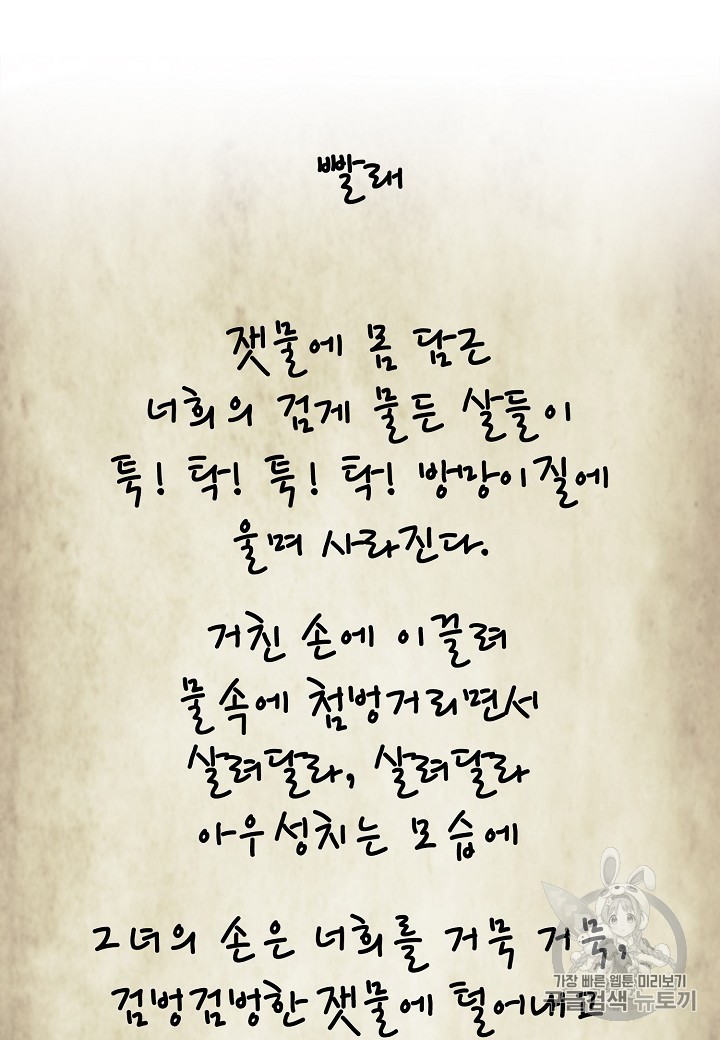 빨래
잿물에 몸 담근
너희의 검게 물든 살들이
툭! 탁! 툭! 탁! 방망이질에
울며 사라진다.
거친 손에 이끌려
물속에 첨벙거리면서
살려달라, 살려달라
아우성치는 모습에
그녀의 손은 너희를 거뭇 거뭇,
검벙검벙한 잿물에 털어내고
가장 빠른 웹툰 미리보기
구글검색 뉴토끼